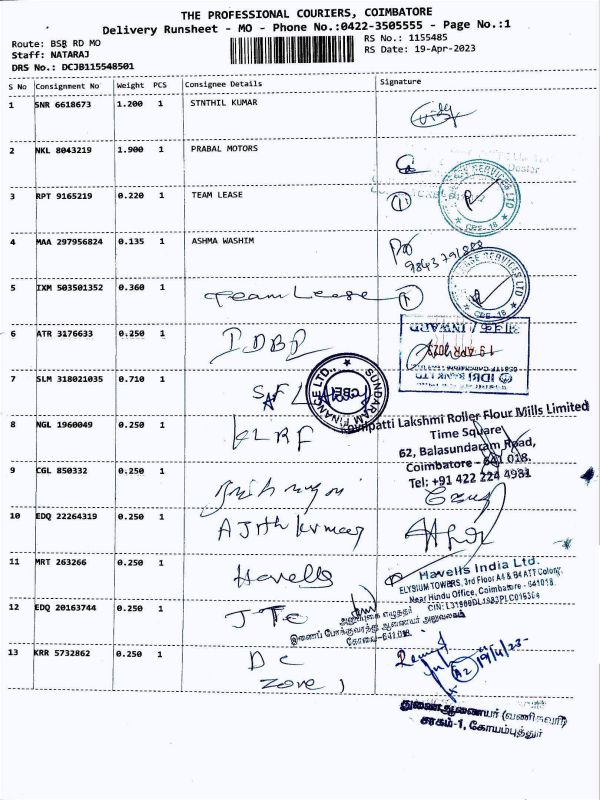 THE PROFESSIONAL COURIERS, COIMBATORE
Delivery Runsheet - MO - Phone No.:0422-3505555 - Page No.:1
Route: BSB RD MO
RS No.: 1155485
Staff: NATARAJ
RS Date: 19-Apr-2023
DRS No.: DCJB115548501
S No Consignment No Weight PCS Consignee Details Signature
1 SNR 6618673 1.200 1 STNTHIL KUMAR
2 NKL 8043219 1.900 1 PRABAL MOTORS
3 RPT 9165219 0.220 1 TEAM LEASE
4 MAA 297956824 0.135 1 ASHMA WASHIM
5 IXM 503501352 0.360 1 Team Lease
6 ATR 3176633 0.250 1 IDBI
19 APR 2023
IDBI BANK LTD
7 SLM 318021035 0.710 1 SFL
SUNDARAM FINANCE LTD.,
CBE
8 NGL 1960049 0.250 1 KLRF
Lakshmi Roller Flour Mills Limited
Time Square
62, Balasundaram Road,
Coimbatore - 641 018.
Tel: +91 422 224 4981
9 CGL 850332 0.250 1
10 EDQ 22264319 0.250 1 AJith kumar
11 MRT 263266 0.250 1 Havells
Havells India Ltd.
ELYSIUM TOWERS, 3rd Floor A4 & B4 ATT Colony,
Near Hindu Office, Coimbatore - 641018.
12 EDQ 20163744 0.250 1 JTC
இணைப் போக்குவரத்து ஆணையர் அலுவலகம்
கோவை-641 018.
13 KRR 5732862 0.250 1 DC
Zone 1
19/4/23
துணை ஆணையர் (வணிகவரி)
சரகம்-1, கோயம்புத்தூர்